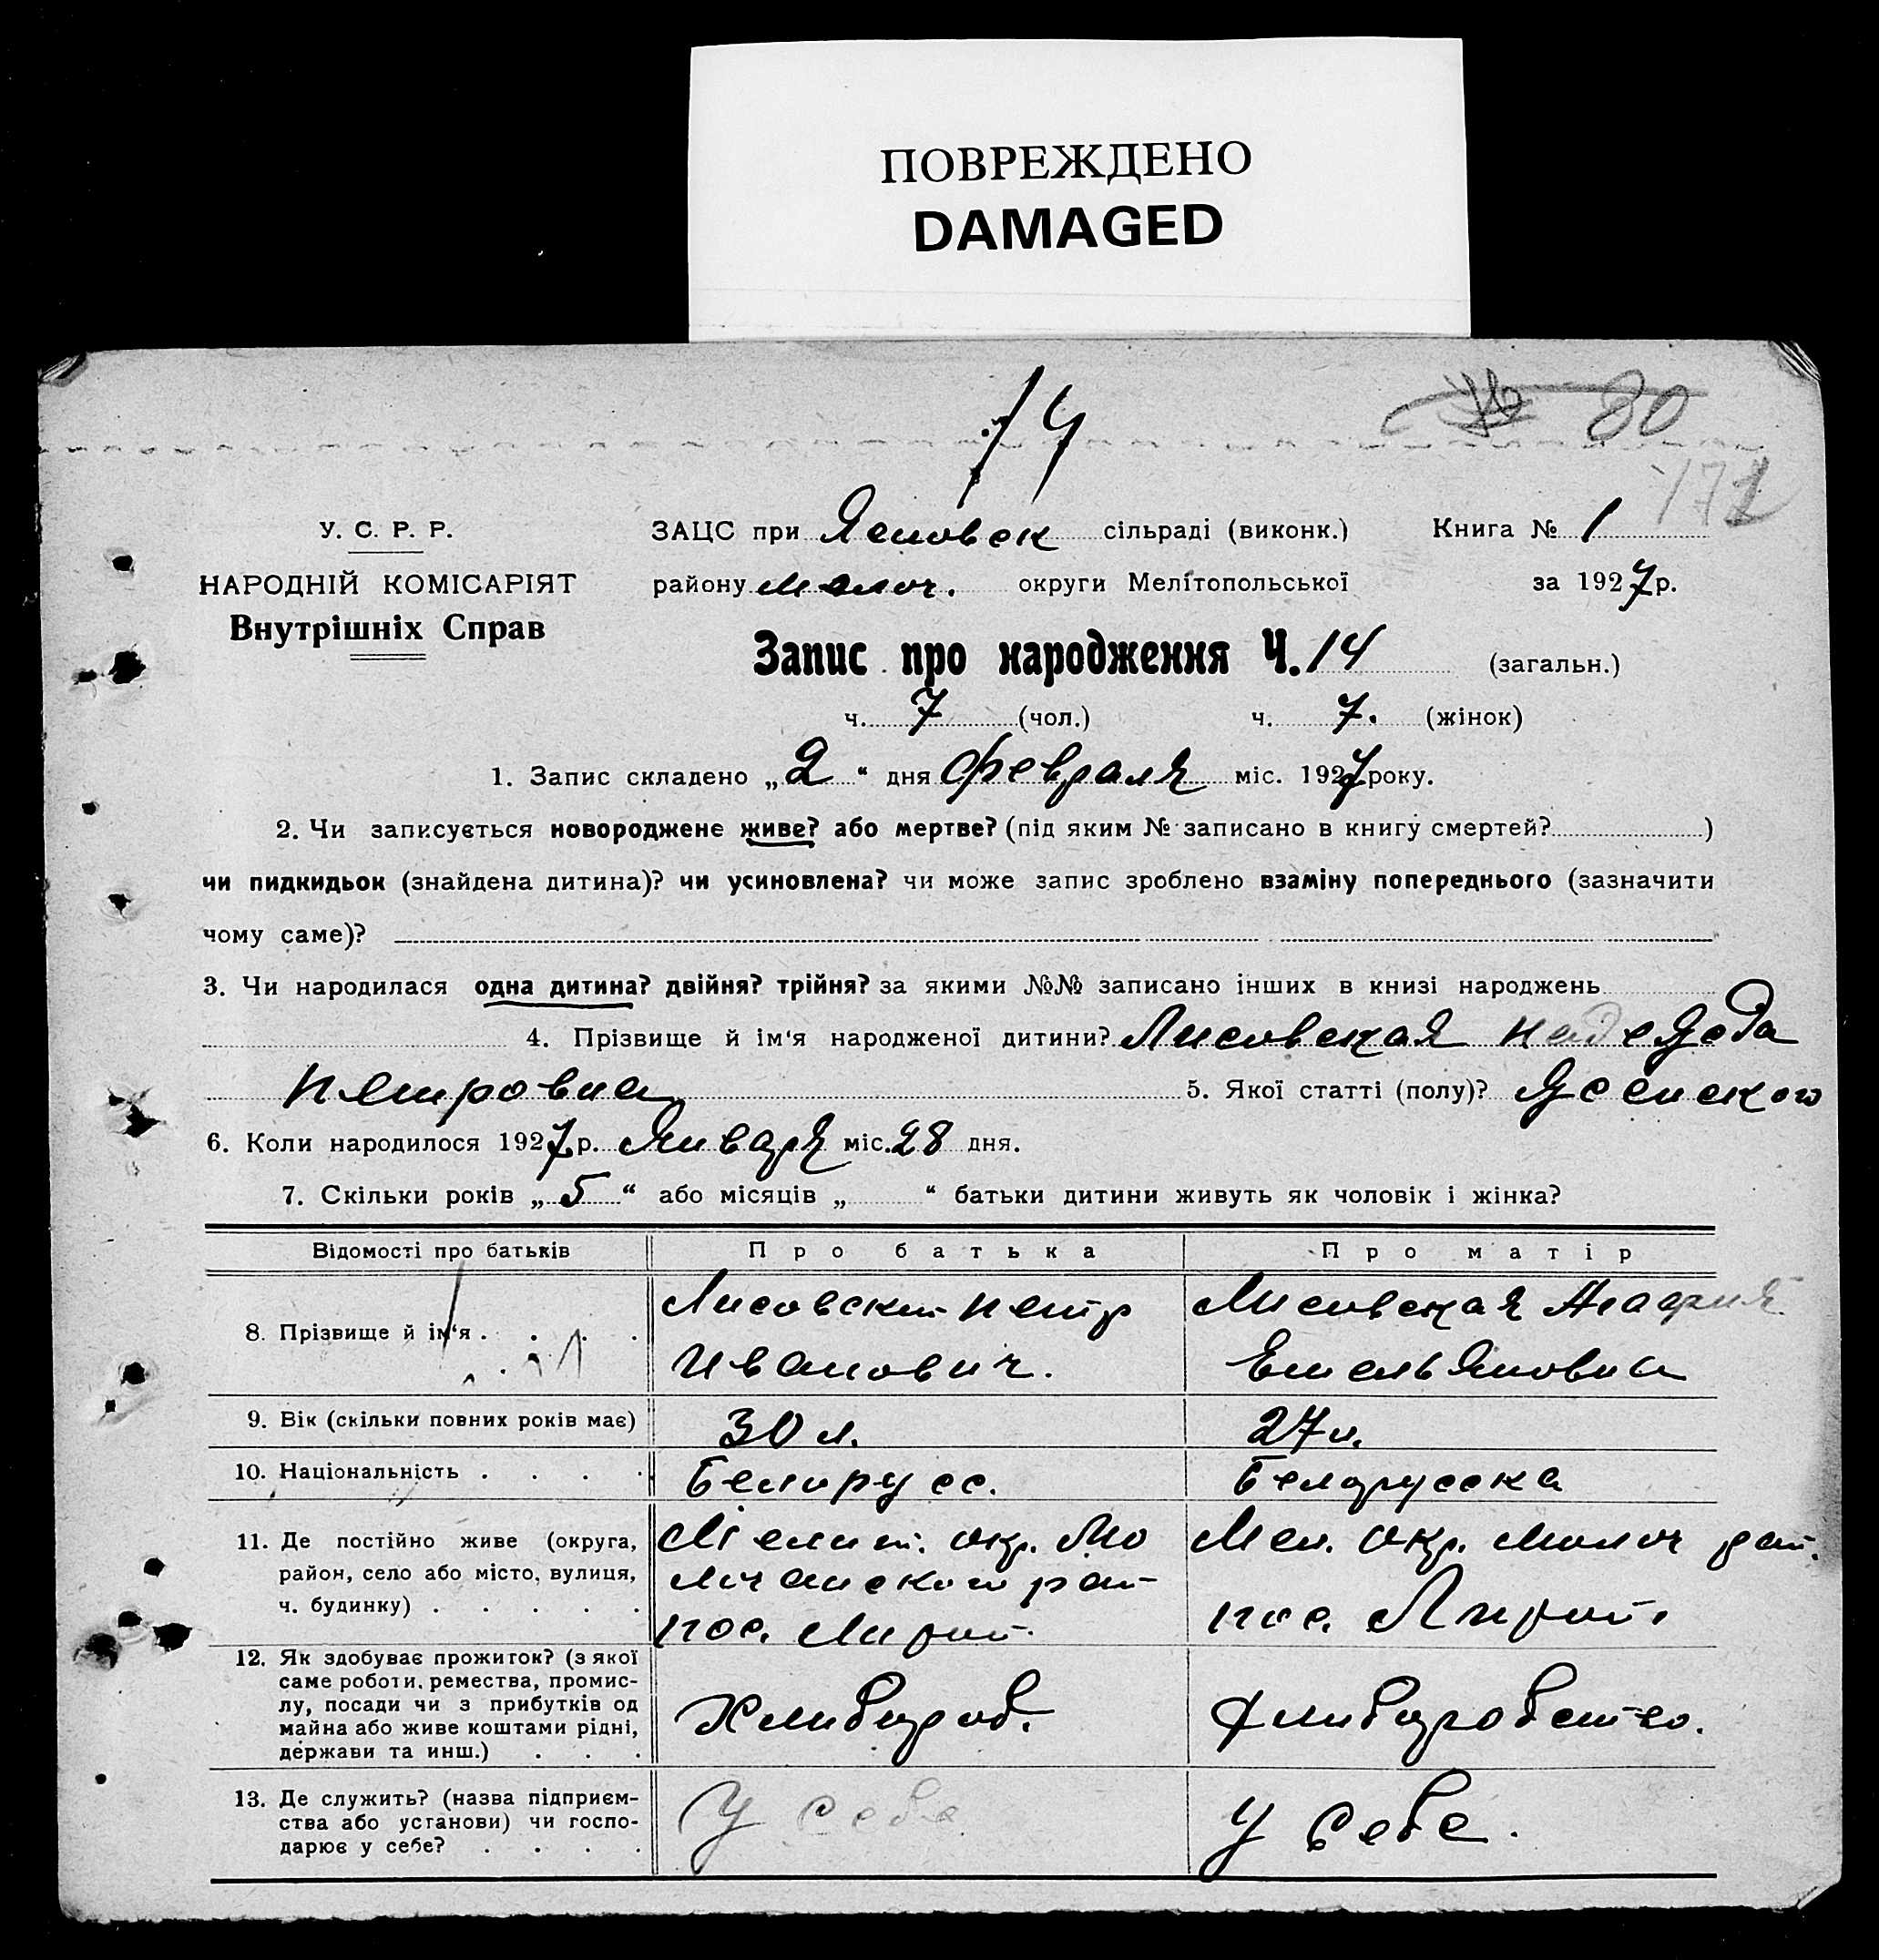 ПОВРЕЖДЕНО
DAMAGED
14
80
171
У. С. Р. Р.
НАРОДНІЙ КОМІСАРІЯТ
Внутрішніх Справ
ЗАЦС при Ясновск сільраді (виконк.) Книга № 1
району Молоч. округи Мелітопольської за 1927 р.
Запис про народження Ч. 14 (загальн.)
ч. 7 (чол.) ч. 7. (жінок)
1. Запис складено „2“ дня февраля міс. 1927 року.
2. Чи записується новороджене живе? або мертве? (під яким № записано в книгу смертей? )
чи пидкидьок (знайдена дитина)? чи усиновлена? чи може запис зроблено взаміну попереднього (зазначити
чому саме)?
3. Чи народилася одна дитина? двійня? трійня? за якими №№ записано інших в книзі народжень
4. Прізвище й ім'я народженої дитини? Лисовская Надежда
Петровна 5. Якої статті (полу)? Женского
6. Коли народилося 1927 р. Января міс. 28 дня.
7. Скільки років „5“ або місяців „ “ батьки дитини живуть як чоловік і жінка?
Відомості про батьків Про батька Про матір
8. Прізвище й ім'я . . . . Лисовский Петр Лисовская Агафия
Иванович. Емельяновна
9. Вік (скільки повних років має) 30 л. 27 л.
10. Національність . . . . Белорусс. Белорусска
11. Де постійно живе (округа, район, село або місто, вулиця, ч. будинку) . . . . .
Мелит. окр. Мо
лочанского рай
пос.
Мел. окр. Молоч рай.
пос.
12. Як здобуває прожиток? (з якої
саме роботи, ремества, промис-
лу, посади чи з прибутків од
майна або живе коштами рідні,
держави та инш.) . . .
Хлибороб. Хлиборобство.
13. Де служить? (назва підприєм-
ства або установи) чи госпо-
дарює у себе? . . . .
У себе У себе.